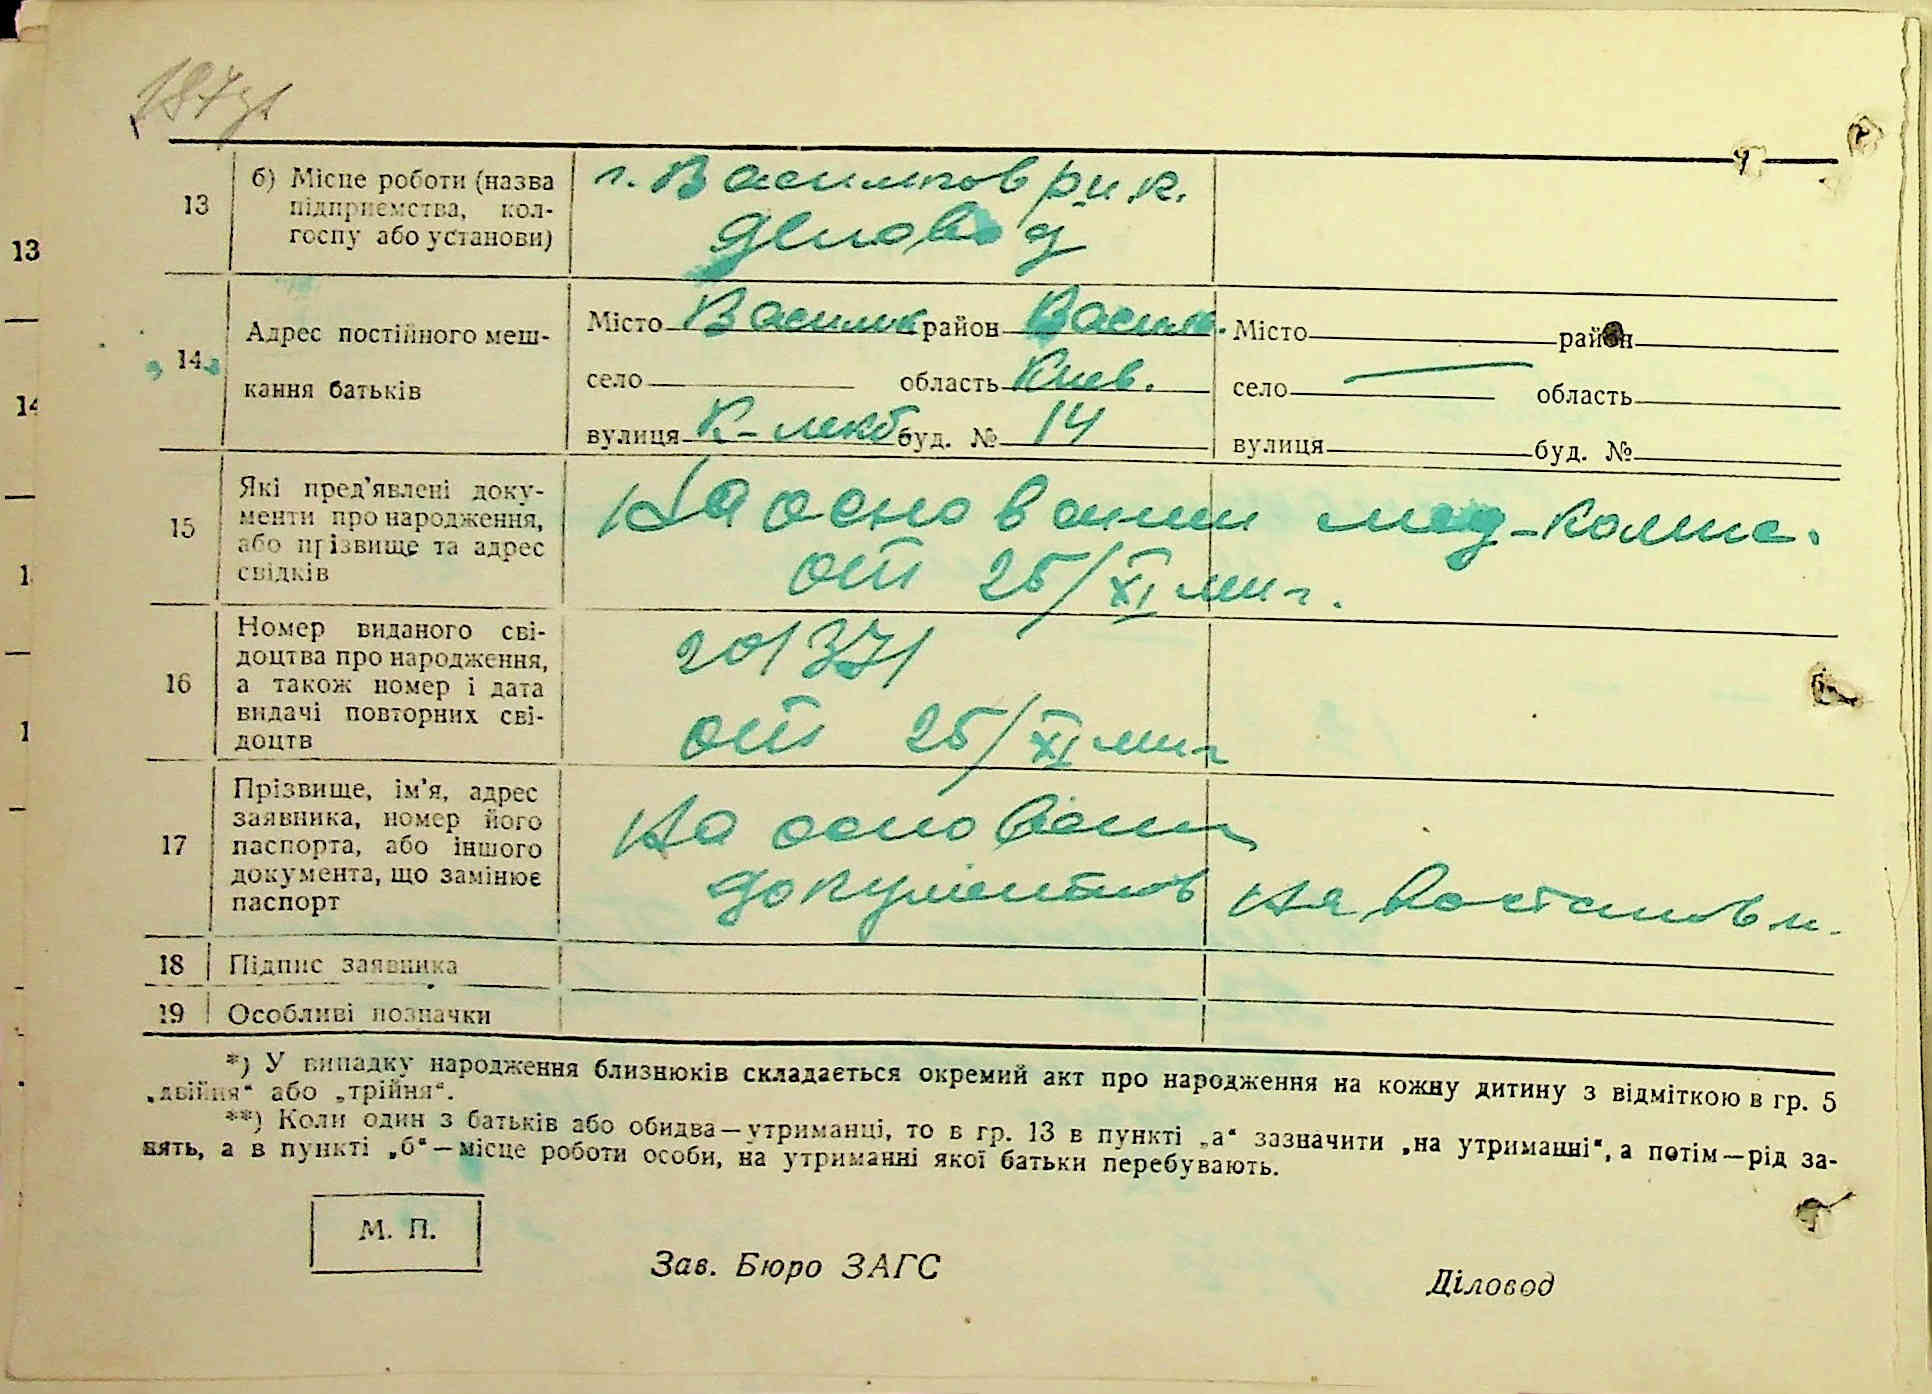 187
13
б) Місце роботи (назва
підприємства, кол-
госпу або установи)
г. Васильков р.и.к.
деловод
13
14
Адрес постійного меш-
кання батьків
Місто Васильк район Васильк.
село область Киев.
вулиця К-лекб буд. № 14
Місто район
село область
вулиця буд. №
14
15
Які пред'явлені доку-
менти про народження,
або прізвище та адрес
свідків
На основании мед-комис.
от 25/XI
1
16
Номер виданого сві-
доцтва про народження,
а також номер і дата
видачі повторних сві-
доцтв
201371
от 25/XI
1
17
Прізвище, ім'я, адрес
заявника, номер його
паспорта, або іншого
документа, що замінює
паспорт
На основании
документов на востановл.
18
Підпис заявника
19
Особливі позначки
*) У випадку народження близнюків складається окремий акт про народження на кожну дитину з відміткою в гр. 5
„двійня“ або „трійня“.
**) Коли один з батьків або обидва—утриманці, то в гр. 13 в пункті „а“ зазначити „на утриманні“, а потім—рід за-
нять, а в пункті „б“—місце роботи особи, на утриманні якої батьки перебувають.
М. П.
Зав. Бюро ЗАГС
Діловод